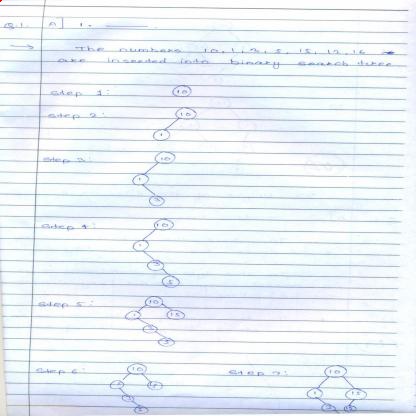 Q.1. A] 1.
→ The numbers 10, 1, 3, 5, 15, 12, 16
are inseeded into binary search tree
step 1: 10
step 2: 10
1
step 3: 10
1
3
step 4: 10
1
3
5
step 5: 10
1 15
3
5
step 6: 10
step 7: 10
1 15